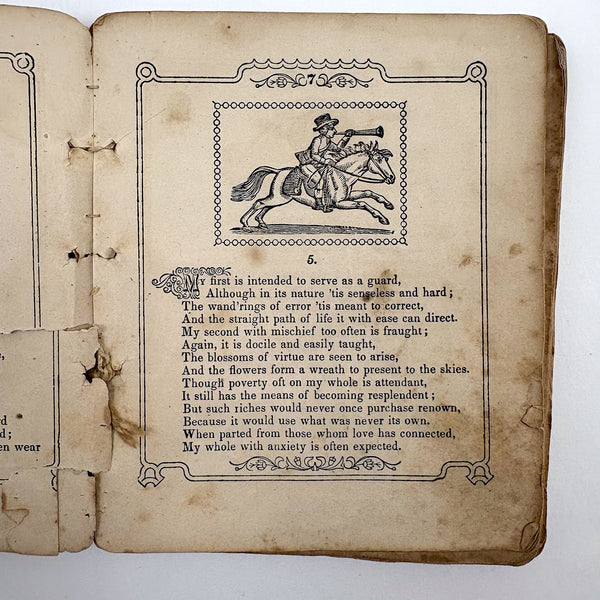 7
5.
My first is intended to serve as a guard,
Although in its nature 'tis senseless and hard;
The wand'rings of error 'tis meant to correct,
And the straight path of life it with ease can direct.
My second with mischief too often is fraught;
Again, it is docile and easily taught,
The blossoms of virtue are seen to arise,
And the flowers form a wreath to present to the skies.
Though poverty oft on my whole is attendant,
It still has the means of becoming resplendent;
But such riches would never once purchase renown,
Because it would use what was never its own.
When parted from those whom love has connected,
My whole with anxiety is often expected.
d;
en wear